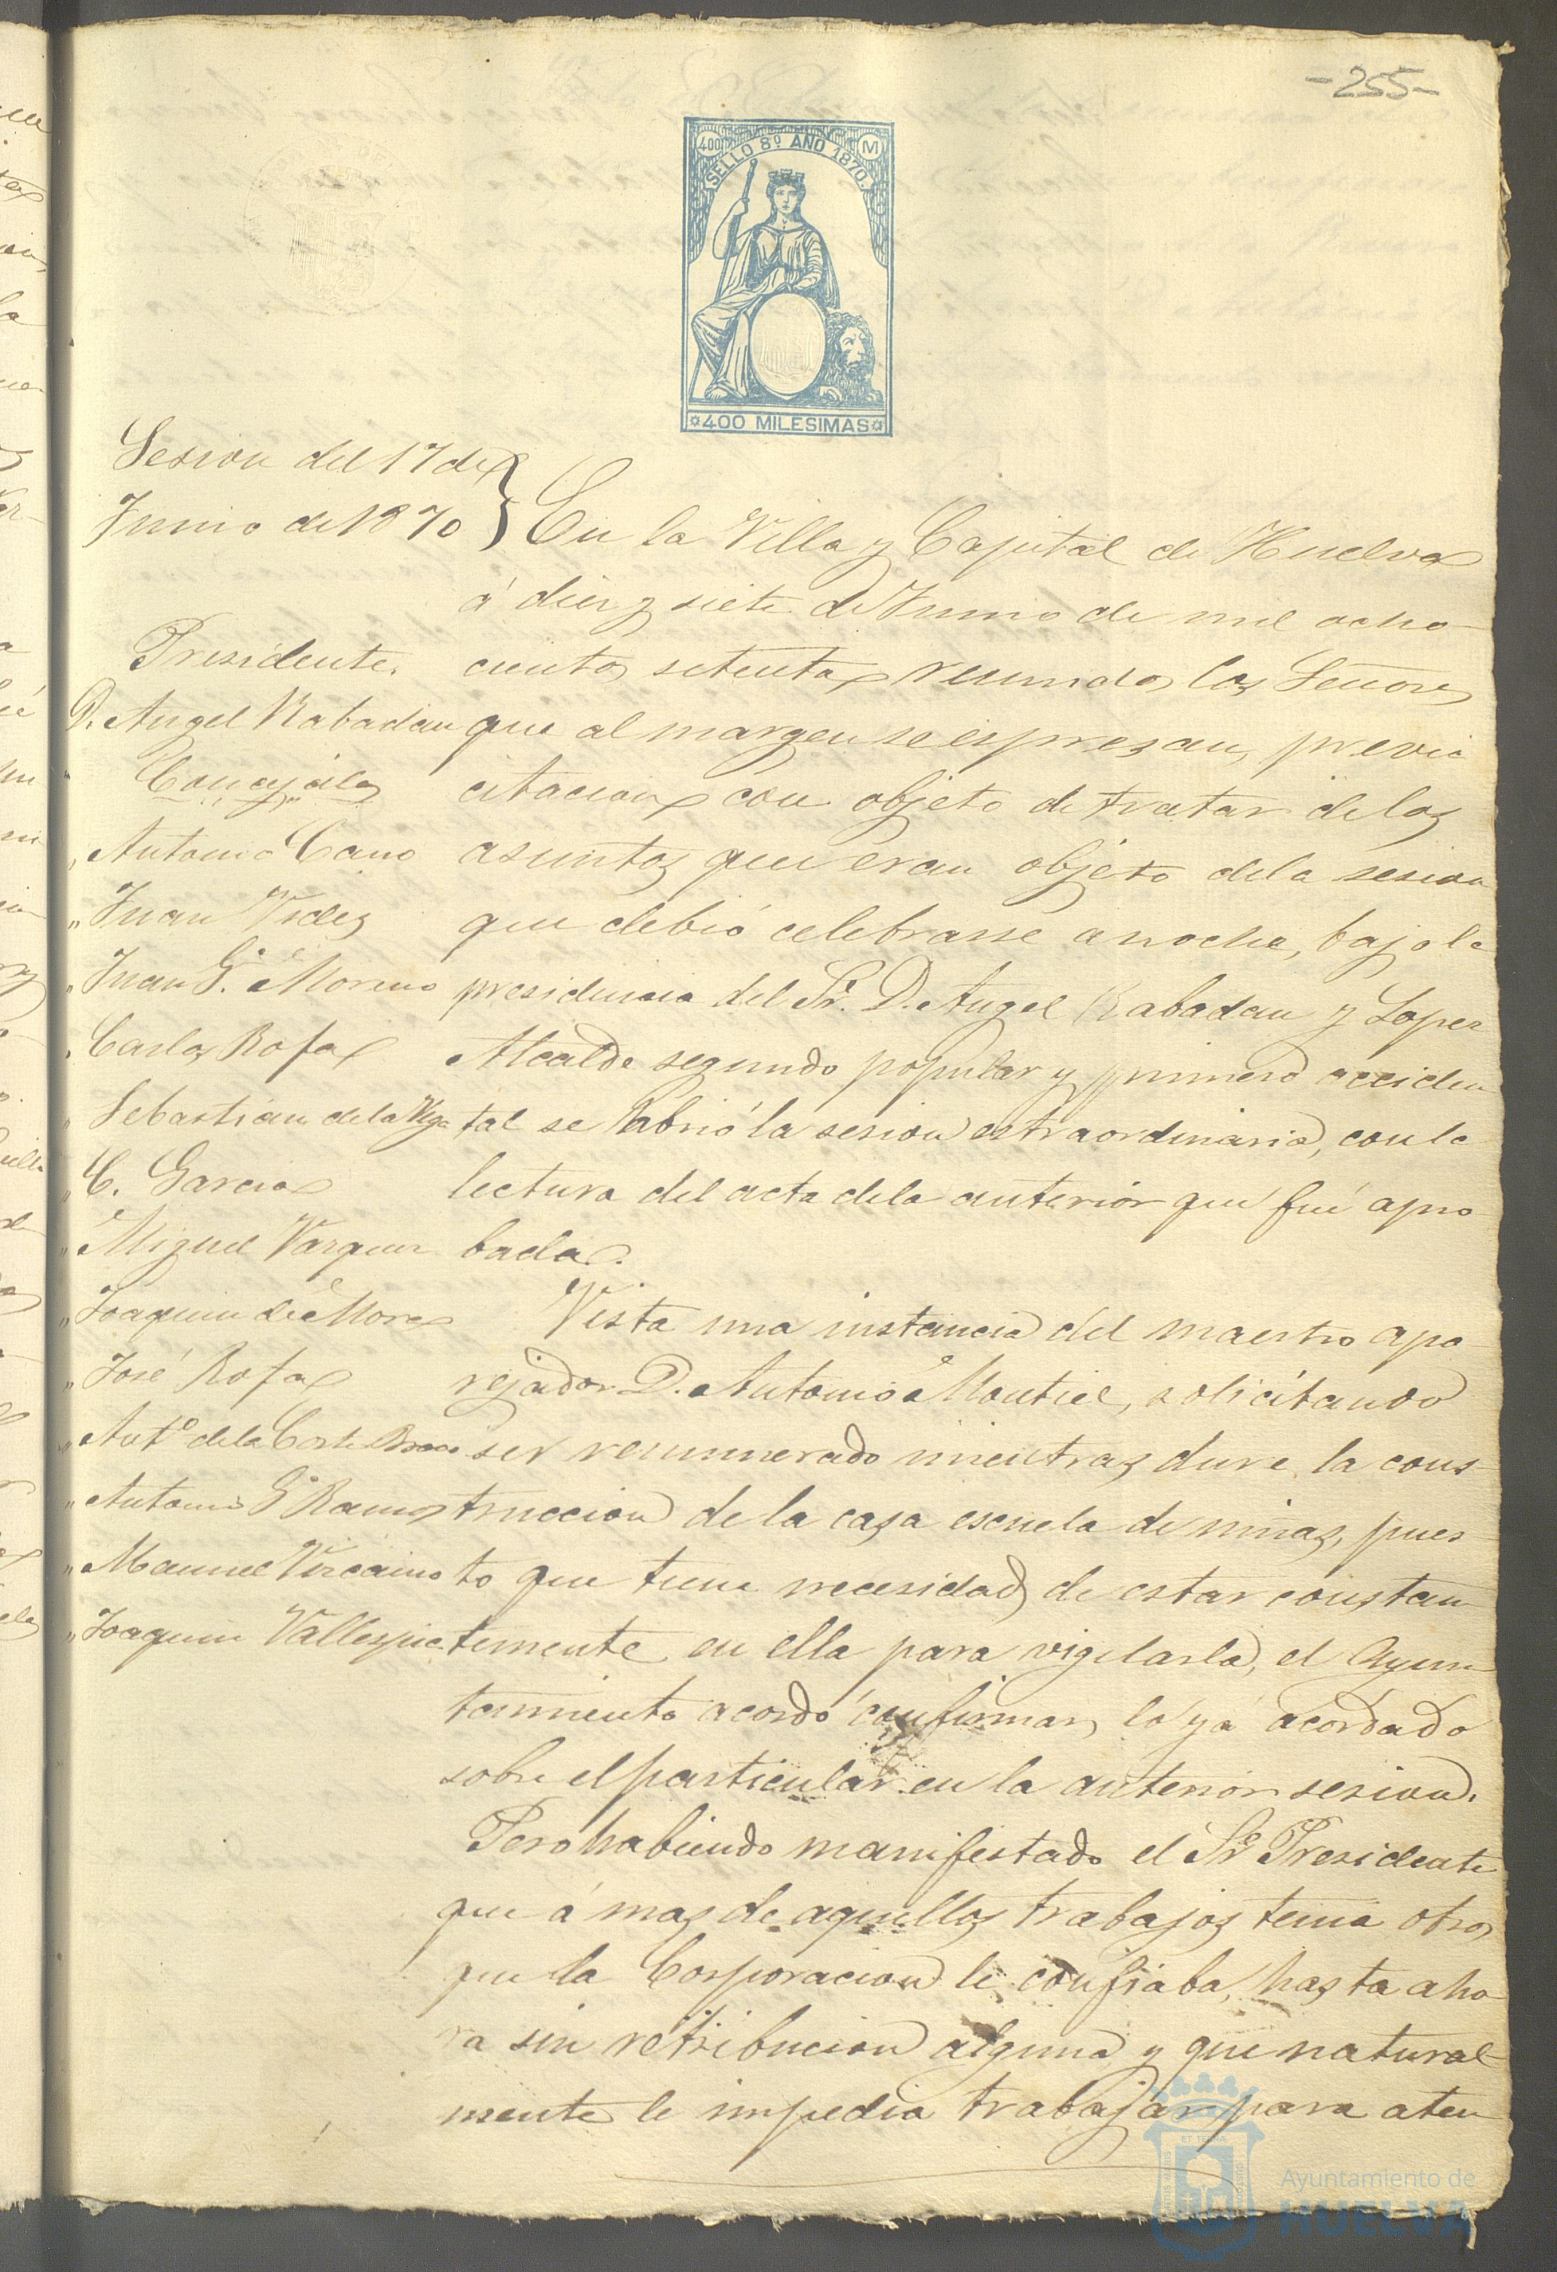 -255-
400 SELLO 8º AÑO 1870. M
400 MILESIMAS
Sesion del 17 de
Junio de 1870
Presidente.
D. Angel Rabadan
Concejales
" Antonio Cano
" Juan Vides
" Juan G.ª Moreno
" Carlos Rofa
" Sebastian de la Vega
" C. Garcia
" Miguel Vazquez
" Joaquin de Mora
" José Rofa
" Ant.º de la Corte
" Antonio G.ª Ramos
" Manuel Vizcaino
" Joaquin Vallespin
En la Villa y Capital de Huelva
á diez y siete de Junio de mil ocho-
cientos setenta reunidos los Señores
que al margen se espresan, previa
citacion con objeto de tratar de los
asuntos que eran objeto de la sesion
que debió celebrarse anoche, bajo la
presidencia del Sr. D. Angel Rabadan y Lopez
Alcalde segundo popular y primero acciden
tal se abrió la sesion estraordinaria, con la
lectura del acta de la anterior que fué apro
bada.
Vista una instancia del maestro apa-
rejador D. Antonio Montiel, solicitando
ser remunerado mientras dure la cons-
truccion de la casa escuela de niñas, pues-
to que tiene necesidad de estar constan
temente en ella para vigilarla, el Ayun-
tamiento acordó confirmar lo yá acordado
sobre el particular en la anterior sesion.
Pero habiendo manifestado el Sr. Presidente
que á mas de aquellos trabajos tenia otros
que la Corporacion le confiaba, hasta aho-
ra sin retribucion alguna y que natural-
mente le impedia trabajar para aten
Ayuntamiento de
HUELVA